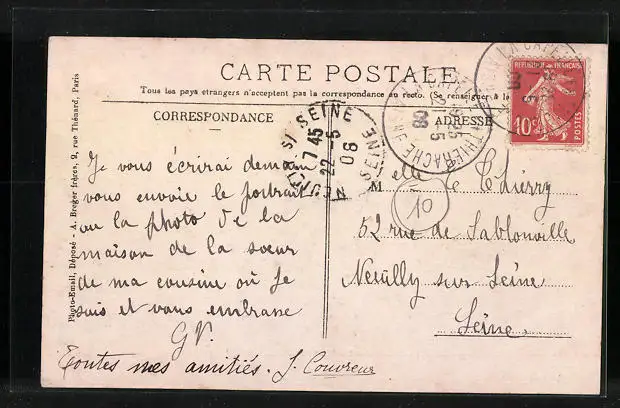 CARTE POSTALE
Tous les pays étrangers n'acceptent pas la correspondance au recto. (Se renseigner à la
CORRESPONDANCE
ADRESSE
Je vous écrirai demain
vous envoie le portrait
ou la photo de la
maison de la sœur
de ma cousine où je
suis et vous embrasse
GV.
Toutes mes amitiés. J. Couvreur
Melle Thierry
52 rue de Sablonville
Neuilly sur Seine
Seine
Photo-Email, Déposé - A. Breger frères, 9, rue Thénard, Paris
REPUBLIQUE FRANÇAISE
10c
POSTES
NEUILLY S/ SEINE
7 45
22 - 5
06
SEINE
LA CAPELLE EN THIERACHE
10